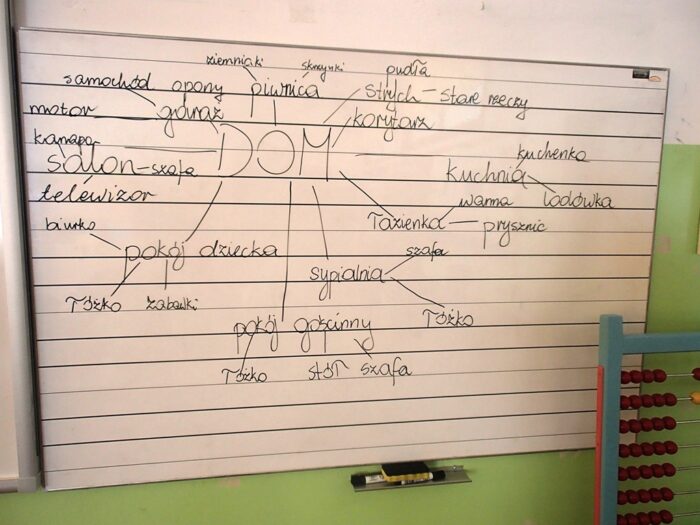 ziemniaki skrzynki pudła
samochód opony piwnica strych - stare rzeczy
motor garaż korytarz
kanapa DOM kuchenka
salon - szafa kuchnia
telewizor wanna lodówka
biurko łazienka prysznic
pokój dziecka szafa
sypialnia
łóżko zabawki łóżko
pokój gościnny
łóżko stół szafa